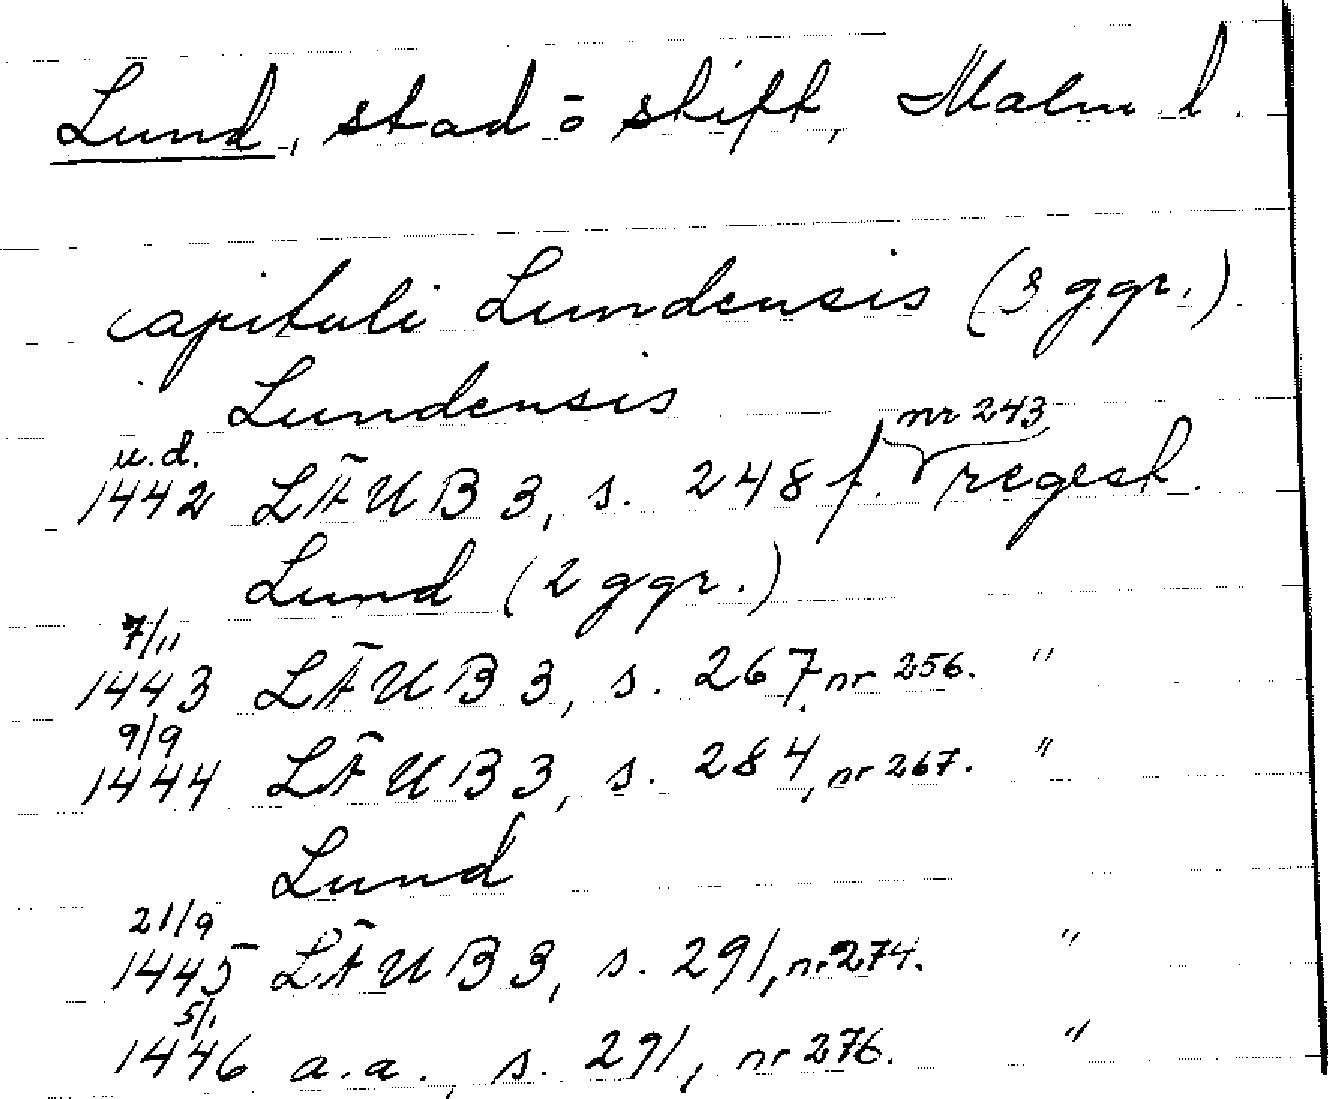 Lund, stad o stift, Malm l.
capituli Lundensis (3 ggr.)
Lundensis
u.d. nr 243
1442 LÄUB 3, s. 248 f. regest.
Lund (2 ggr.)
7/11
1443 LÄUB 3, s. 267, nr 256. "
9/9
1444 LÄUB 3, s. 284, nr 267. "
Lund
21/9
1445 LÄUB 3, s. 291, nr 274. "
5/1
1446 a.a., s. 291, nr 276. "